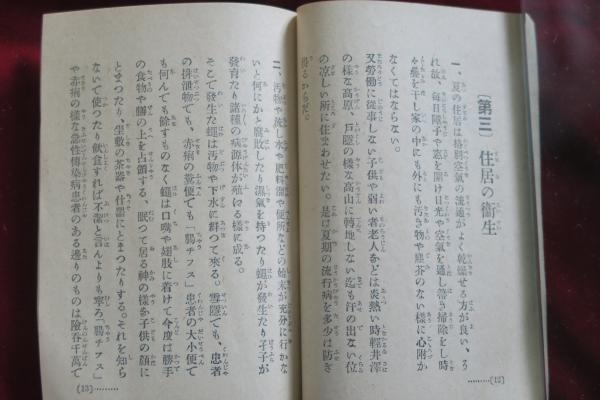 〔第三〕 住居の衞生
一、夏の住居は格別空氣の流通がよく乾燥せる方が良い、そ
れ故、毎日障子や窓を開け日光や空氣を通し善き掃除をし時
々疊を干し家の中にも外にも汚き物や塵芥のない樣に心附か
なくてはならない。
又勞働に從事しない子供や弱い老人などは炎熱い時輕井澤
の樣な高原、戸隱の樣な高山に轉地しない迄も汗の出ない位
の凉しい所に住まわせたい。是は夏期の流行病を多少は防ぎ
得るからだ。
(12)
二、汚物や流し水や肥料溜や便所などの始末が充分に行かな
いと何にかと腐敗したり濕氣を持つたり蠅が發生たり孑孑が
發育たり諸種の病源体が殖ゆる樣に成る。
そこで發生た蠅は汚物や下水に群つて來る。雪隱でも、患者
の排泄物でも、赤痢の糞便でも「膓チフス」患者の大小便で
も何んでも餘すものなく蠅は口嘴や翅肢に着けて今度は勝手
の食物や膳の上を占領する、眠つて居る神の樣な子供の顏に
とまつたり、坐敷の茶器や什器にとまつたりする。それを知ら
ないで使つたり飮食すれば不潔と言んよりも寧ろ「膓チフス」
や赤痢の樣な急性傳染病患者のある邊りのものは險呑千萬で
(13)